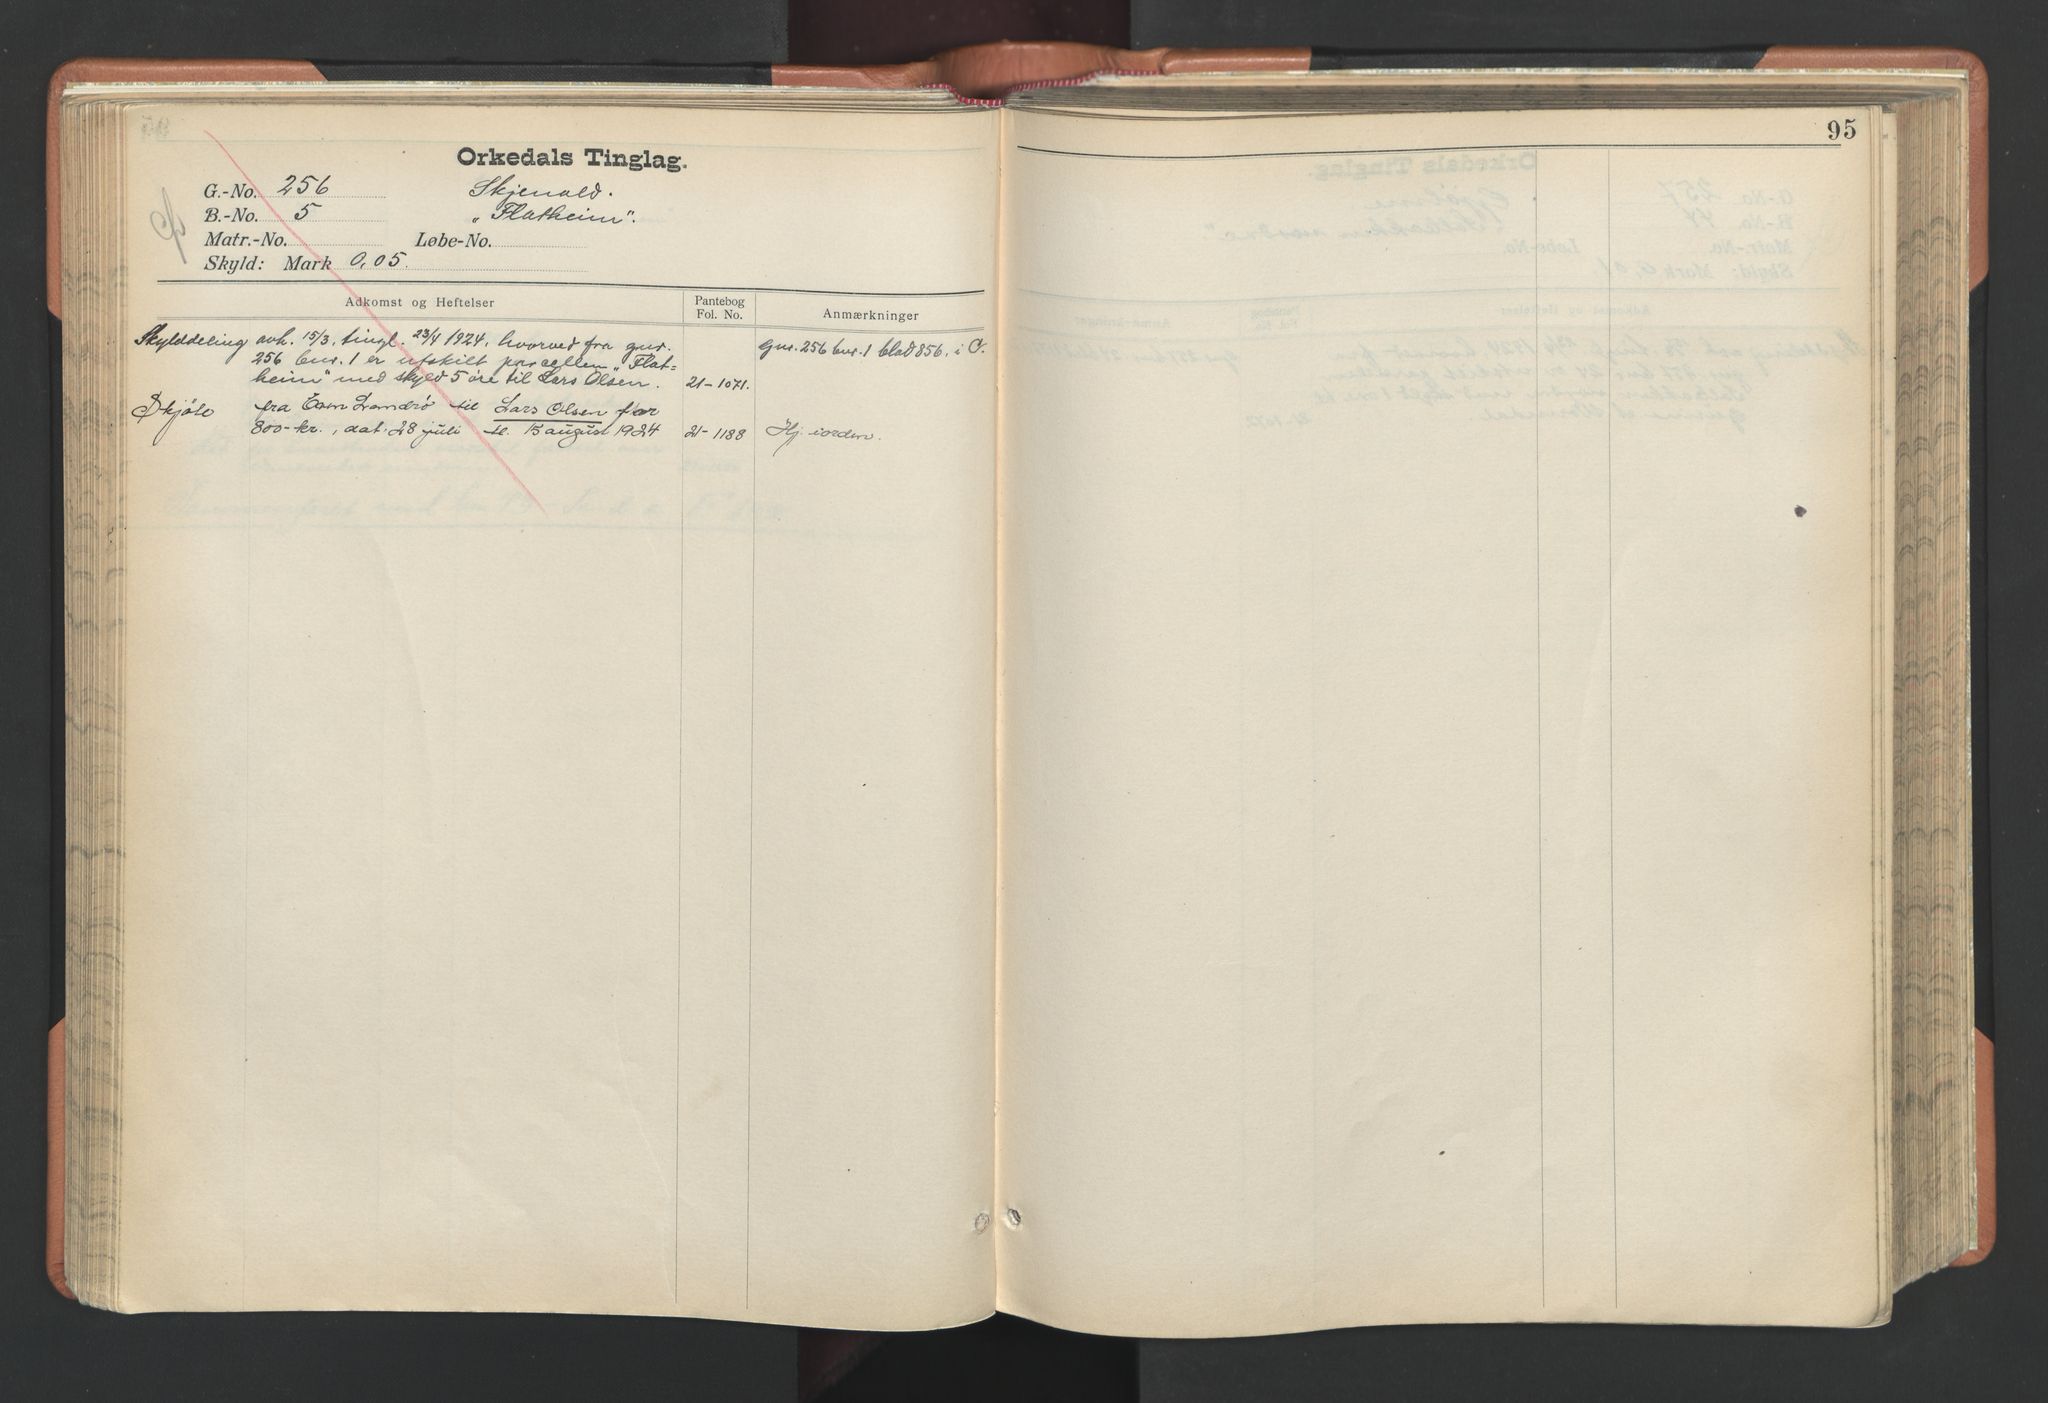 95
Orkedals Tinglag.
G.-No. 256 Skjenald.
B.-No. 5 „Flatheim".
Matr.-No. Løbe-No.
Skyld: Mark 0,05.
Adkomst og Heftelser Pantebog Fol. No. Anmærkninger
Skylddeling avh. 15/3, tingl. 23/4 1924, hvorved fra gnr. gnr. 256 bnr. 1 blad 856, i
256 bnr. 1 er utskilt parcellen „Flat-
heim" med skyld 5 øre til Lars Olsen. 21-1071.
Skjøte fra til Lars Olsen for
800- kr., dat. 28 juli tl. 15 august 1924 21-1188 Hj. iorden.